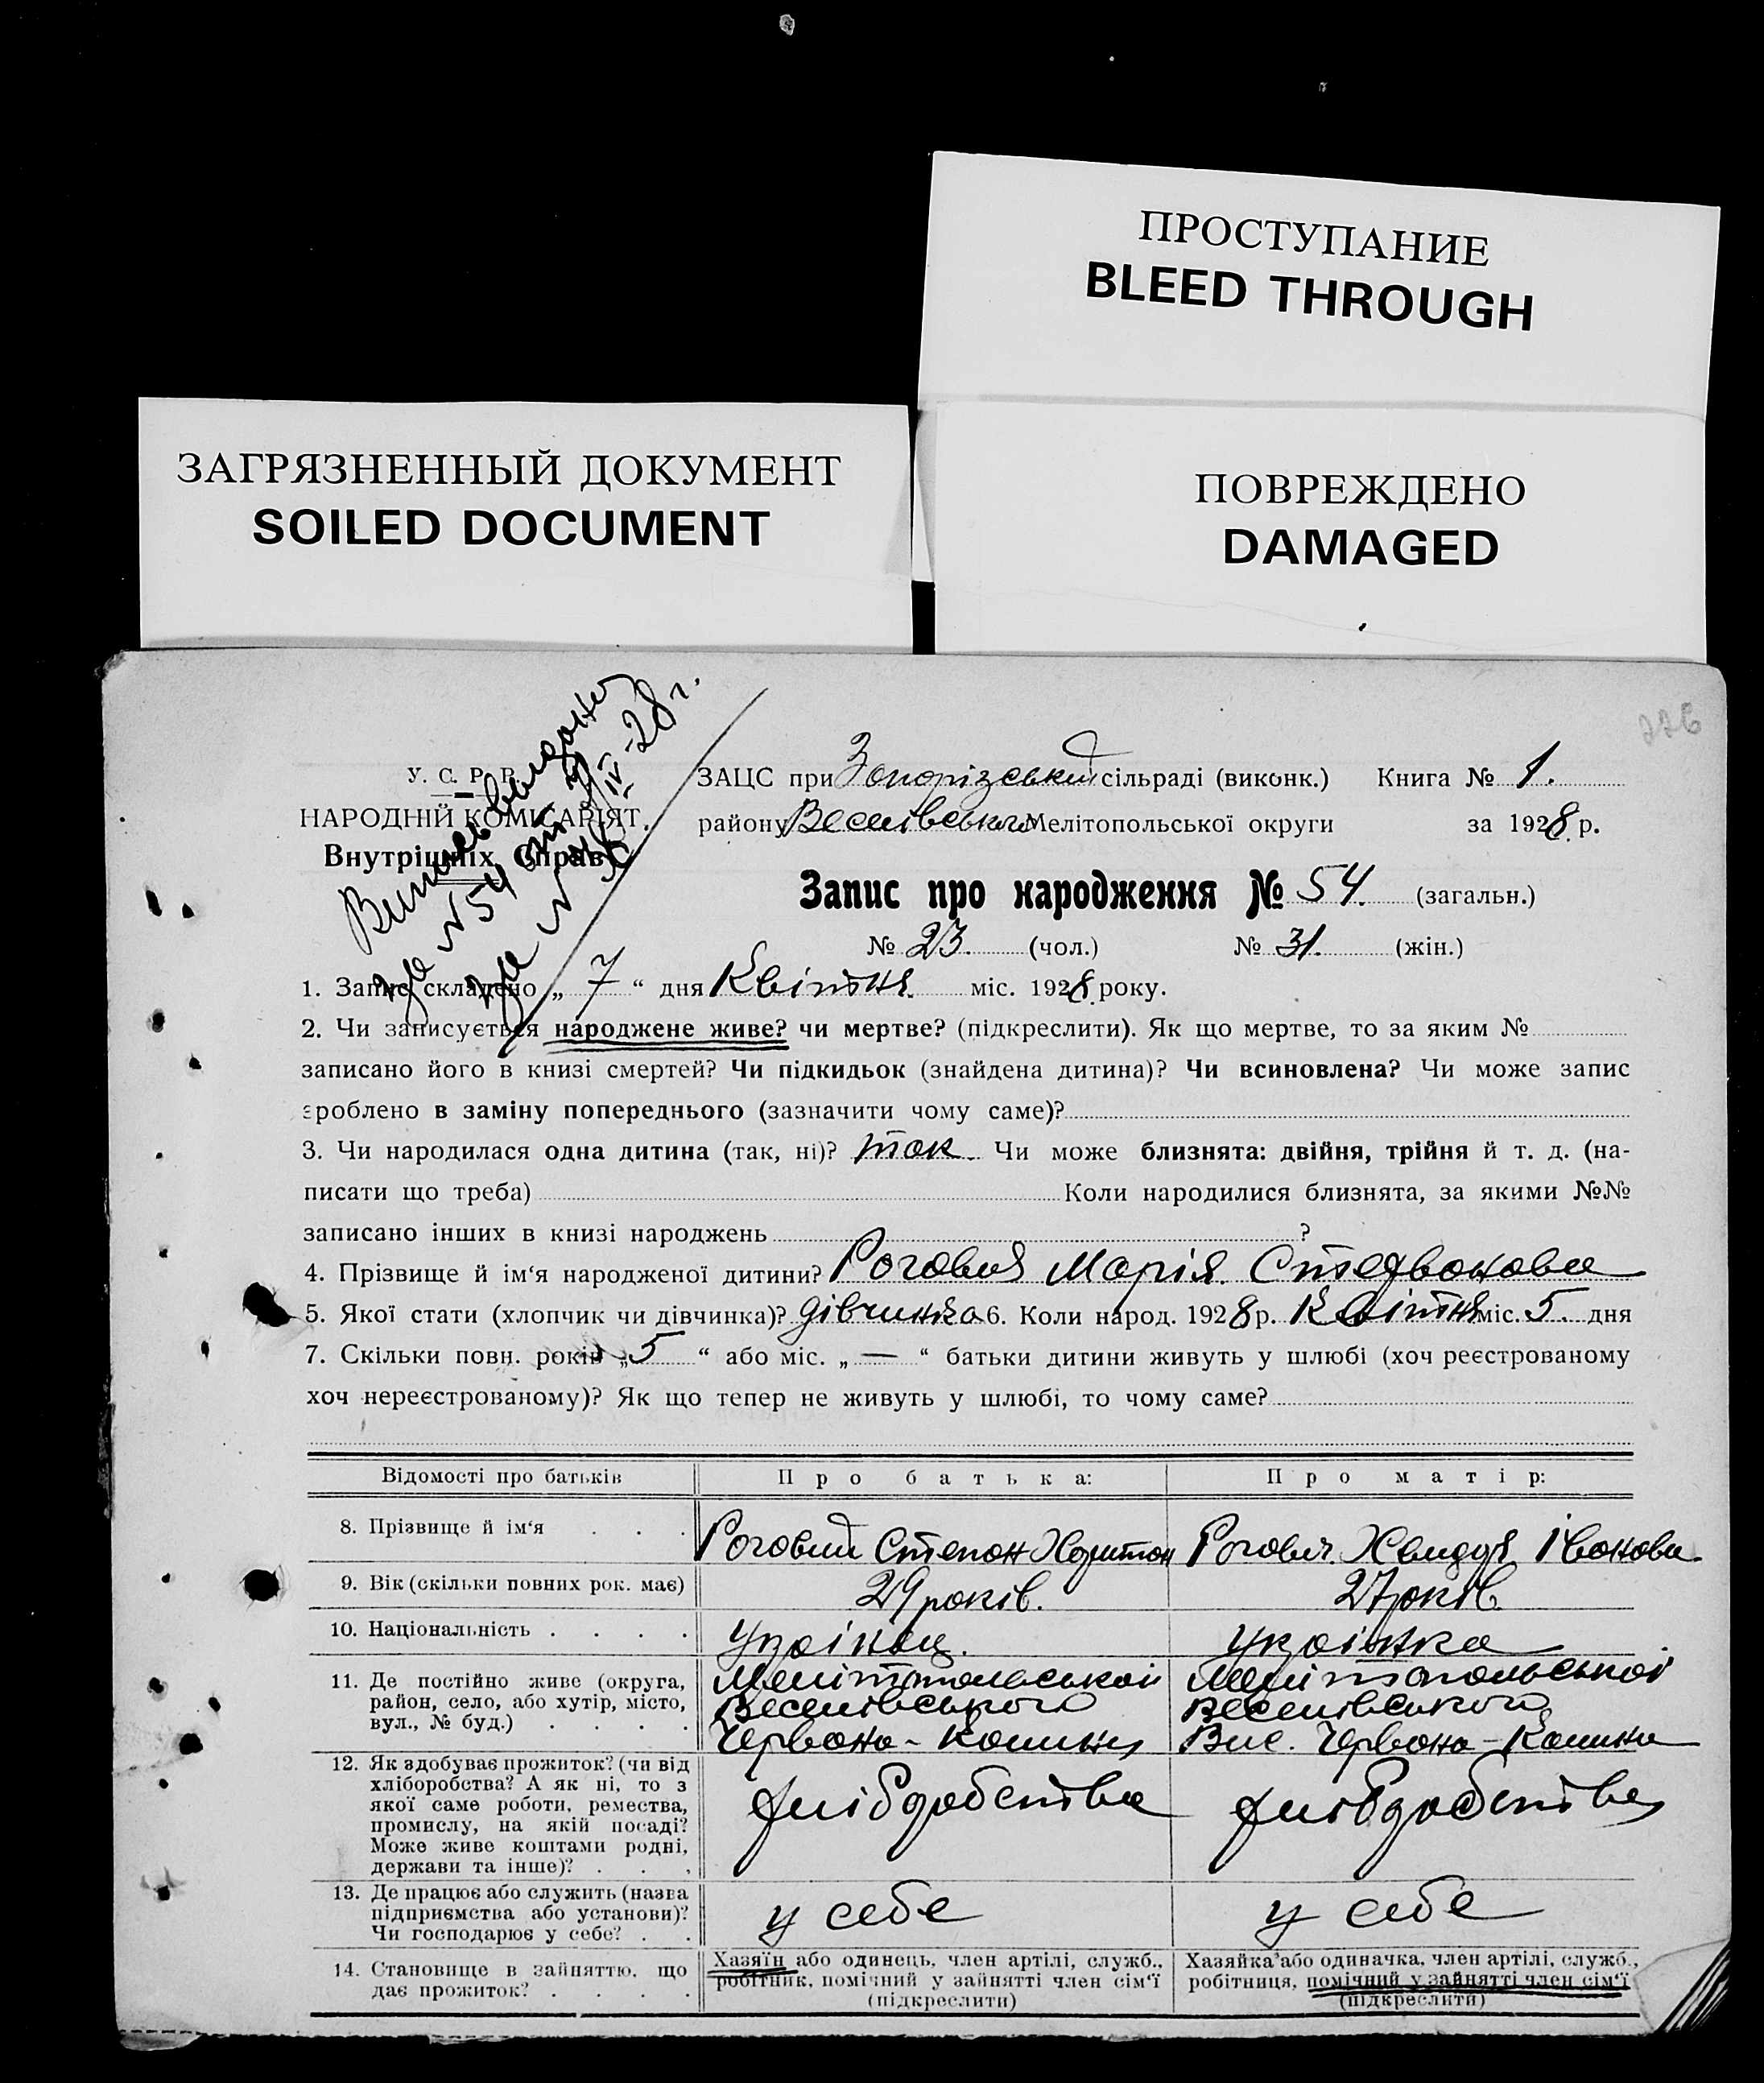 ПРОСТУПАНИЕ
BLEED THROUGH
ЗАГРЯЗНЕННЫЙ ДОКУМЕНТ
SOILED DOCUMENT
ПОВРЕЖДЕНО
DAMAGED
226
Витяг видано
за N 54 от 7/IV-28 г.
за N
У. С. Р. Р.
НАРОДНІЙ КОМІСАРІЯТ
Внутрішніх Справ
ЗАЦС при Запорізський сільраді (виконк.) Книга № 1.
району Веселівського Мелітопольської округи за 1928 р.
Запис про народження № 54. (загальн.)
№ 23 (чол.) № 31. (жін.)
1. Запис складено „ 7 “ дня Квітня міс. 1928 року.
2. Чи записується народжене живе? чи мертве? (підкреслити). Як що мертве, то за яким №
записано його в книзі смертей? Чи підкидьок (знайдена дитина)? Чи всиновлена? Чи може запис
зроблено в заміну попереднього (зазначити чому саме)?
3. Чи народилася одна дитина (так, ні)? так. Чи може близнята: двійня, трійня й т. д. (на-
писати що треба) Коли народилися близнята, за якими №№
записано інших в книзі народжень ?
4. Прізвище й ім‘я народженої дитини? Роговия Марія Стефвонова
5. Якої стати (хлопчик чи дівчинка)? дівчинка 6. Коли народ. 1928 р. Квітня міс. 5. дня
7. Скільки повн. років „ 5 “ або міс. „ — “ батьки дитини живуть у шлюбі (хоч реєстрованому
хоч нереєстрованому)? Як що тепер не живуть у шлюбі, то чому саме?
Відомості про батьків Про батька: Про матір:
8. Прізвище й ім‘я . . . Роговий Степон Харитон Рогович Іванова
9. Вік (скільки повних рок. має) 29 років. 27 років.
10. Національність . . . . Украінец. Украінка
11. Де постійно живе (округа, район, село, або хутір, місто, вул., № буд.) . . . .
Мелітопольськоі Мелітопольськоі
Веселівського Веселівського
Червона-Калина Вис. Червона-Калина
12. Як здобуває прожиток? (чи від хліборобства? А як ні, то з якої саме роботи, ремества, промислу, на якій посаді? Може живе коштами родні, держави та інше)? . . .
хлібдробства хлібдробства
13. Де працює або служить (назва підприємства або установи)? Чи господарює у себе? . .
у себе у себе
14. Становище в зайняттю, що дає прожиток? . . . .
Хазяїн або одинець, член артілі, служб., робітник, помічний у зайнятті член сім‘ї (підкреслити)
Хазяйка або одиначка, член артілі, служб., робітниця, помічний у зайнятті член сім‘ї (підкреслити)